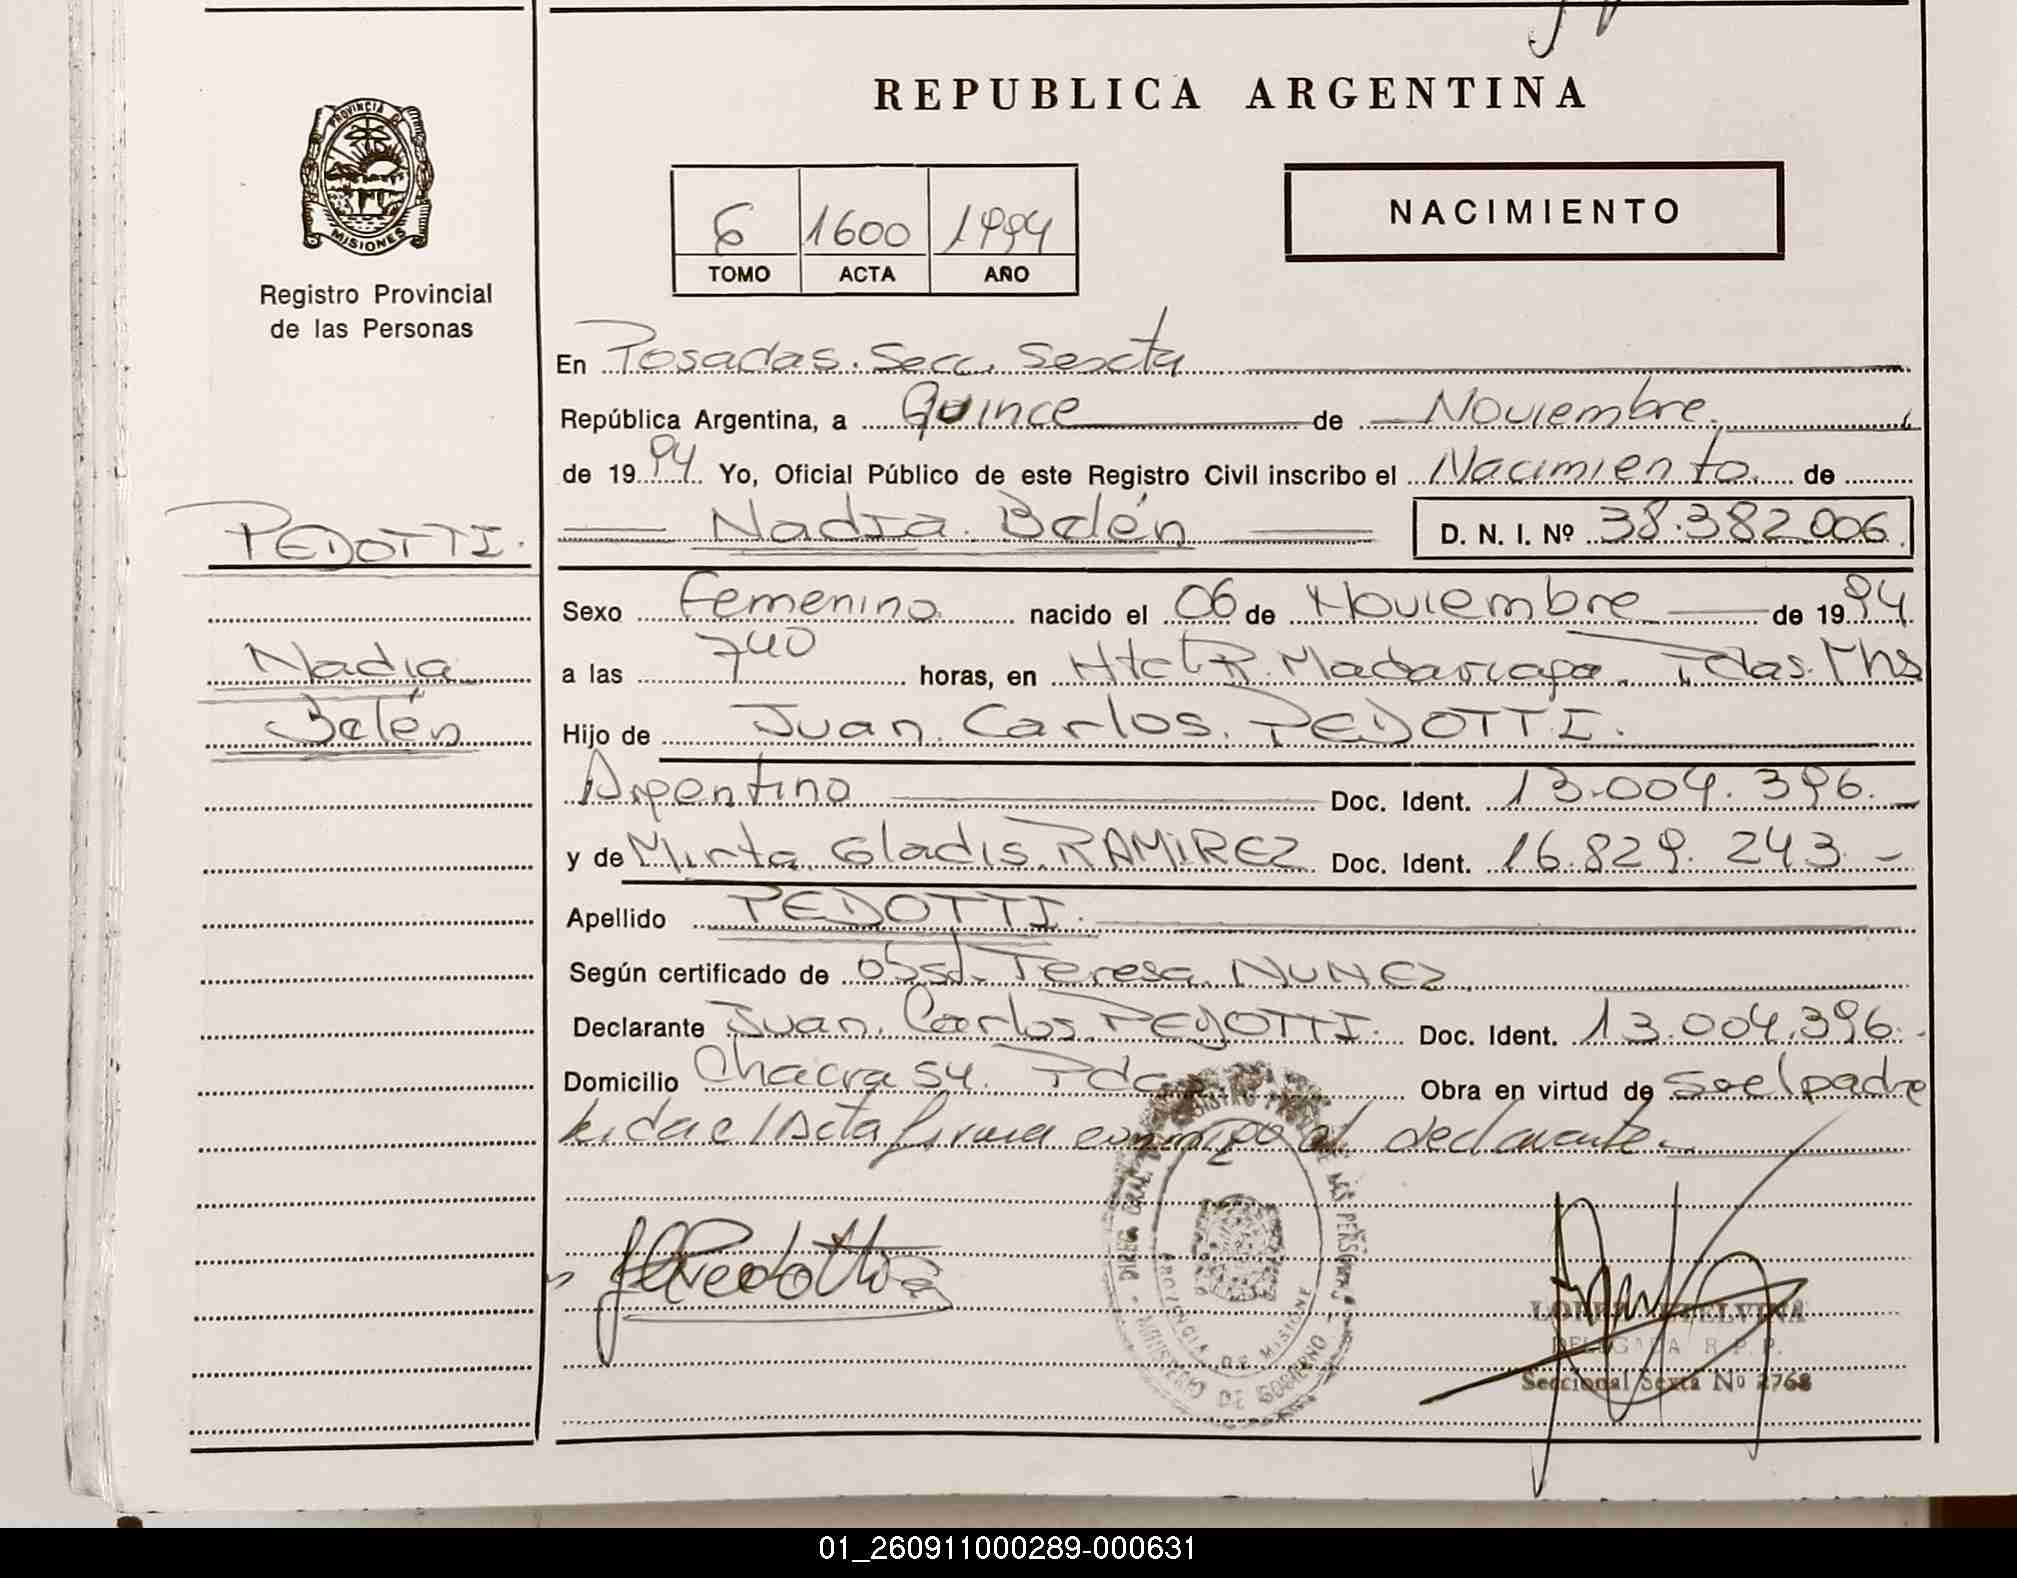 REPUBLICA ARGENTINA
PROVINCIA DE
MISIONES
Registro Provincial
de las Personas
6 1600 1994
TOMO ACTA AÑO
NACIMIENTO
En Posadas. Secc. Sexta
República Argentina, a Quince de Noviembre.
de 1994 Yo, Oficial Público de este Registro Civil inscribo el Nacimiento de
PEDOTTI.
Nadia Belén D. N. I. Nº 38.382.006
Sexo Femenino nacido el 06 de Noviembre de 1994
Nadia
a las 740 horas, en R. Madariaga. Pdas. Mns
Belén
Hijo de Juan Carlos PEDOTTI.
Argentino Doc. Ident. 13.004.396.
y de Mirta Gladis RAMIREZ Doc. Ident. 16.829.243.-
Apellido PEDOTTI.
Según certificado de obst. Teresa NUNEZ
Declarante Juan Carlos PEDOTTI. Doc. Ident. 13.004.396.
Domicilio Chacra 54. Obra en virtud de padre
Leida el Acta firma conmigo el declarante.
DIREC. GRAL. DE LAS PERSONAS
PROVINCIA DE MISIONES
MINISTERIO DE GOBIERNO
JCPedotti
LOPEZ
DELEGADA R.P.P.
Seccional Sexta Nº 2768
01_260911000289-000631